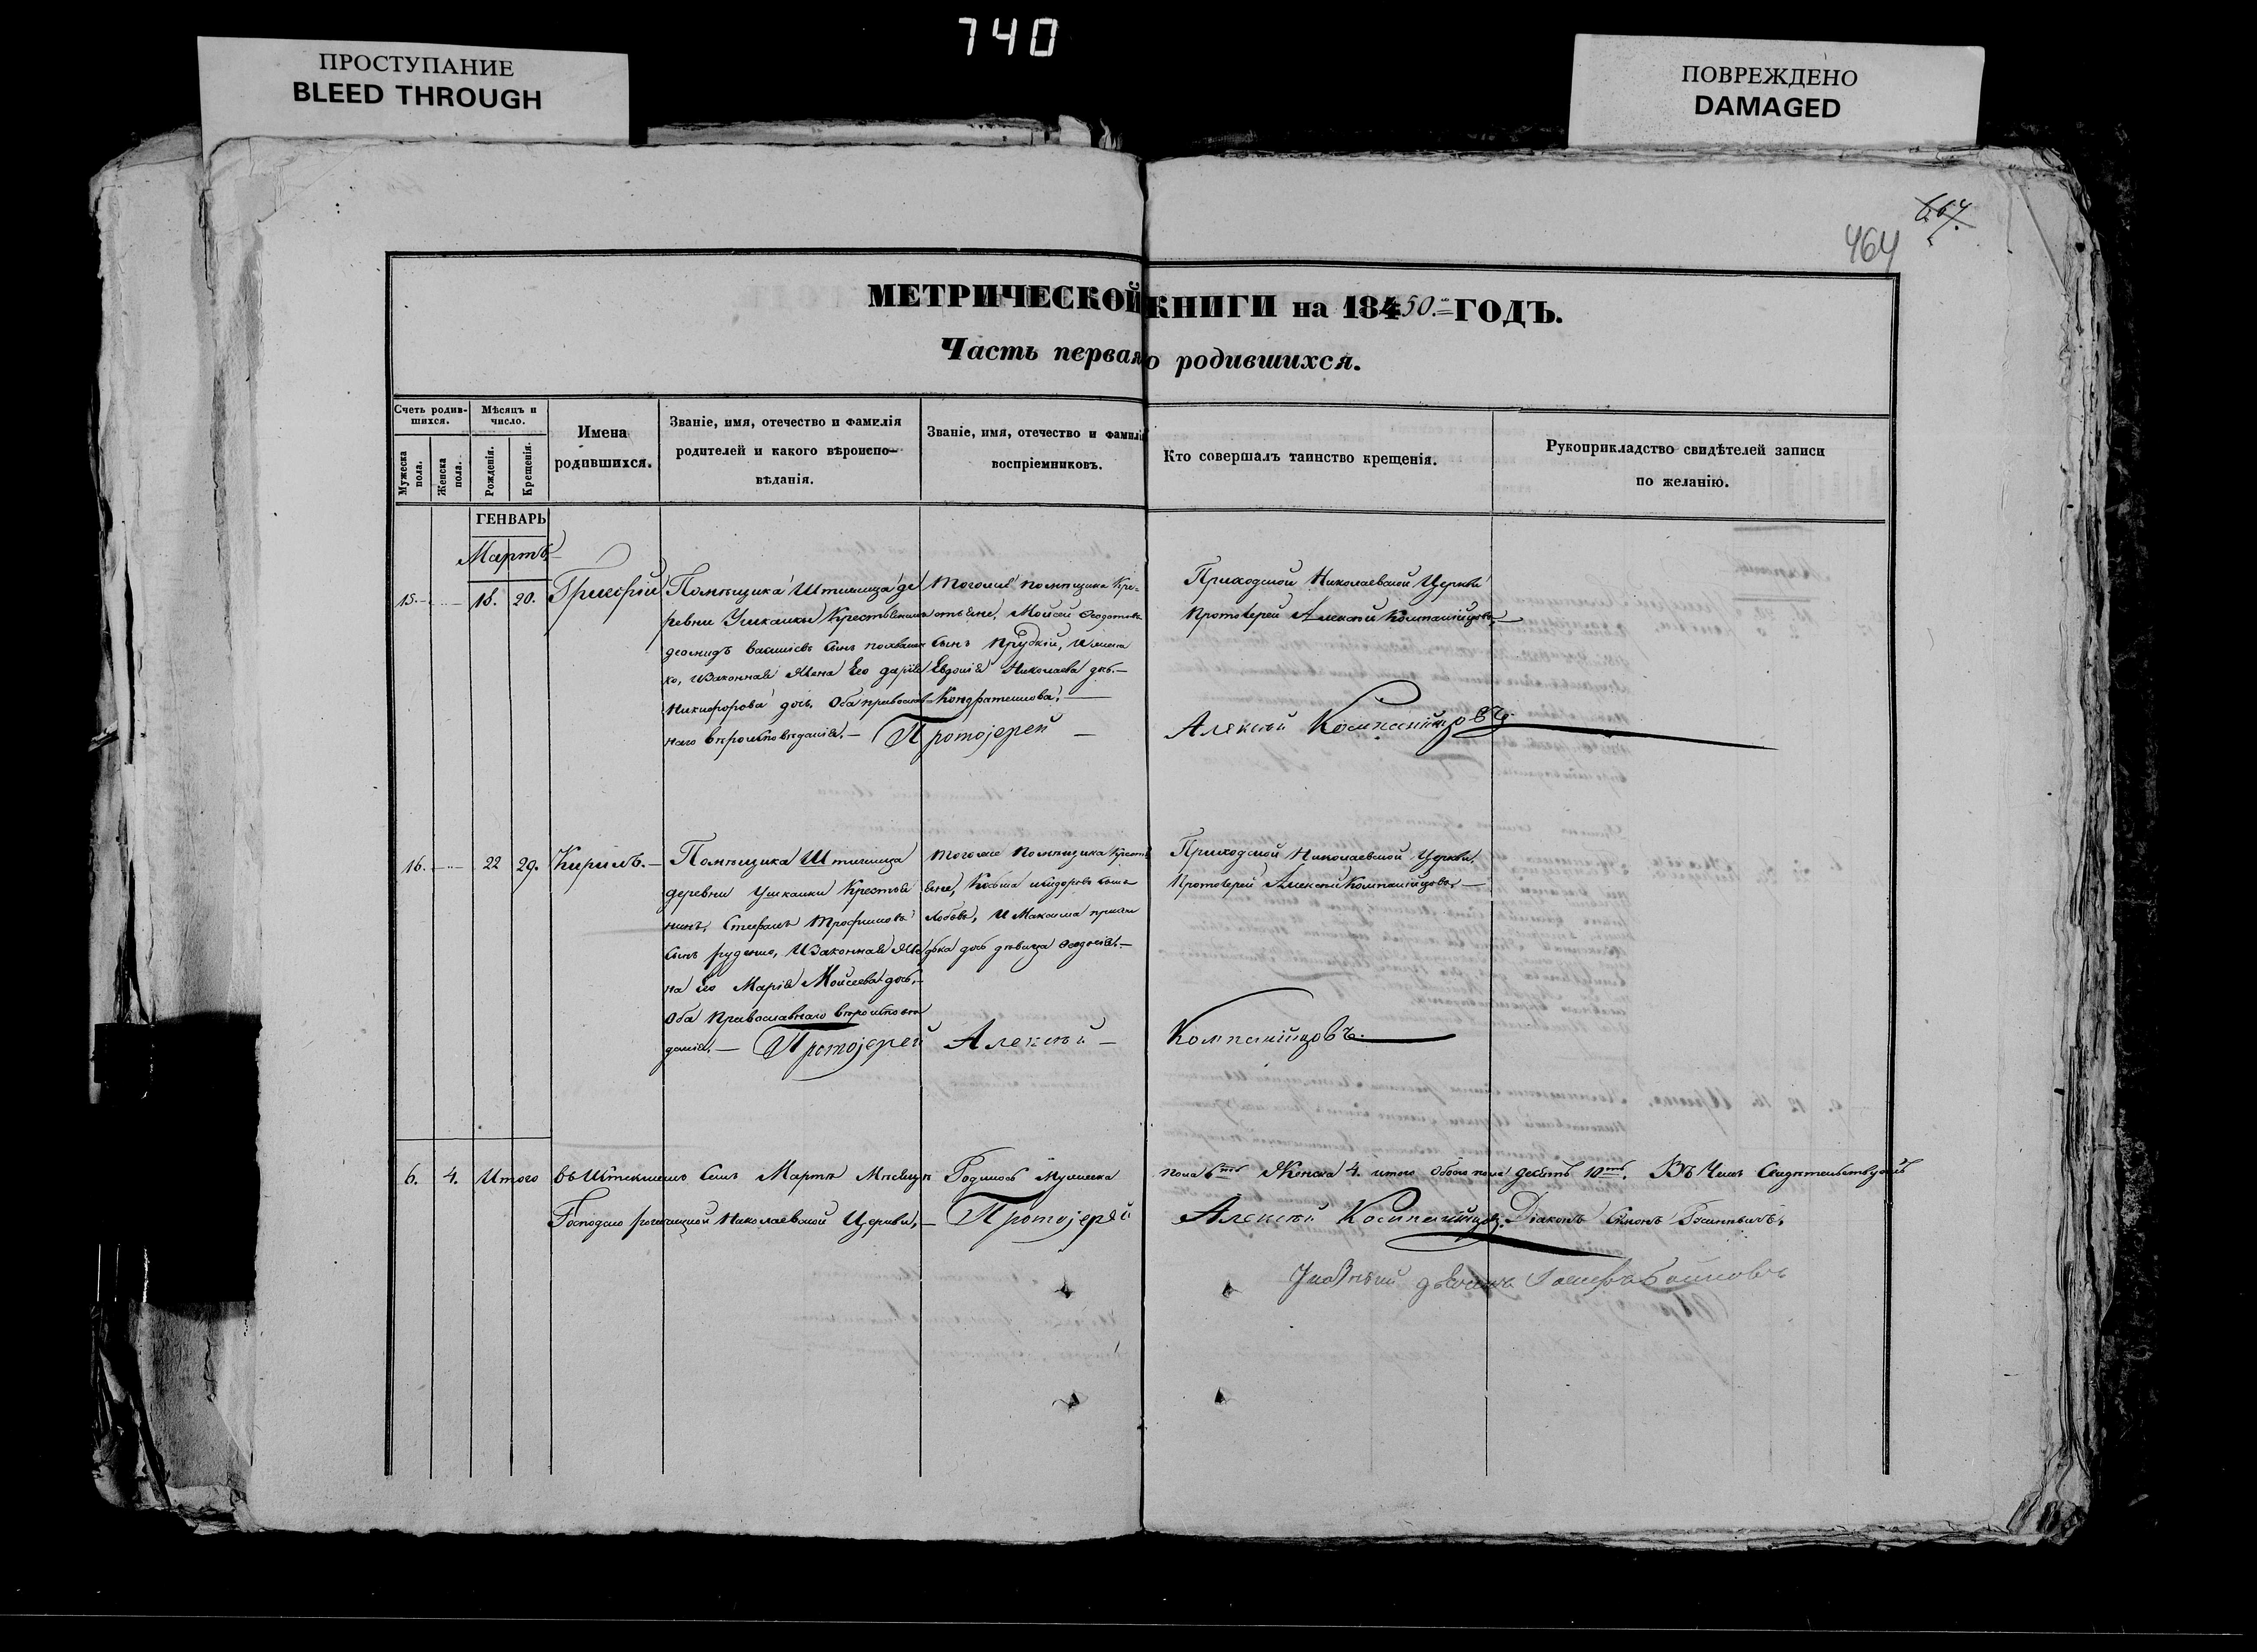 740
ПРОСТУПАНИЕ
BLEED THROUGH
ПОВРЕЖДЕНО
DAMAGED
667.
464
МЕТРИЧЕСКОЙ КНИГИ на 18450. ГОДЪ.
Часть первая о родившихся.
Счетъ родив-
шихся.
Мужеска
пола.
Женска
пола.
Мѣсяцъ и
число.
Рожденія.
Крещенія.
Имена
родившихся.
Званіе, имя, отечество и фамилія
родителей и какого вѣроиспо-
вѣданія.
Званіе, имя, отечество и фамилі
воспріемниковъ.
Кто совершалъ таинство крещенія.
Рукоприкладство свидѣтелей записи
по желанію.
ГЕНВАРЬ
Мартъ
15. 18. 20. Григорій
Помѣщика Штигница де
ревни Ушкалки Крестьянинъ
сынъ
ко, изаконная Жена Его Дарія
Никифорова дочь. Оба православ-
наго вѣроисповѣданія. — Протоіерей —
тогожъ помѣщика Кре-
стьяне, Мойсей Федотовъ
сынъ Прудкій, и
Евдокія Николаева
Кондратенкова. —
Приходской Николаевской Церкви
Протоіерей Алексѣй Компанійцовъ
Алексѣй Компанійцовъ
16. 22 29. Кирилъ. —
Помѣщика Штигница
деревни Ушкалки Крестья
нинъ, Стефанъ Трофимовъ
сынъ Руденко, изаконная Же
на его Марія Мойсеева дочь,
Оба Православнаго вѣроисповѣ
данія. — Протоіерей
тогоже помѣщика Кресть
яне, Козьма сынъ
и Максима
дочь дѣвица Феодосія. —
Алексѣй —
Приходской Николаевской Церкви,
Протоіерей Алексѣй Компанійцовъ, —
Компанійцовъ.
6. 4. Итого въ семъ Мартѣ Мѣсяцѣ Родилось Мужеска пола 6 Женска 4. итого Обоего пола десять 10. Въ Чемъ Свидѣтельствуемъ
Николаевской Церкви, — Протоіерей Алексѣй Компанійцовъ. Діаконъ Симонъ